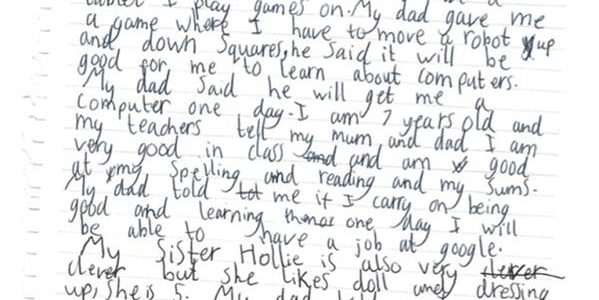 tablet I play games on. My dad gave me
a game where I have to move a robot up
and down squares, he said it will be
good for me to learn about computers.
My dad said he will get me a
computer one day. I am 7 years old and
my teachers tell my mum and dad I am
very good in class and and am good
at my spelling and reading and my sums.
My dad told tot me if I carry on being
good and learning one day I will
be able to have a job at google.
My sister Hollie is also very clever
clever but she likes doll and dressing
up, she is 5. My dad